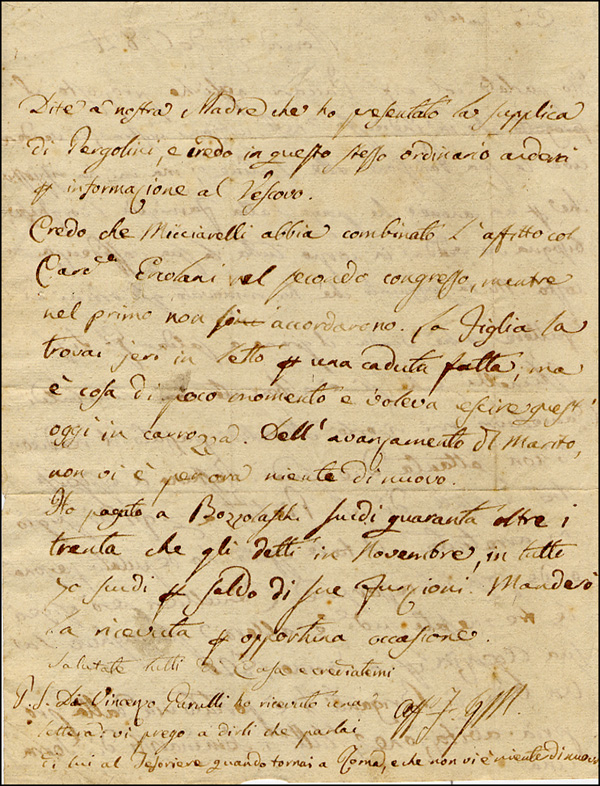 Dite a nostra Madre che ho presentato la supplica
di Pergolini, e credo in questo stesso ordinario anderà
p informazione al Vescovo.
Credo che Micciarelli abbia combinato l'affitto col
Card.e Ercolani nel secondo congresso, mentre
nel primo non si accordarono. La Figlia la
trovai jeri in letto p una caduta fatta, ma
è cosa di poco momento e voleva escire quest'
oggi in carrozza. Dell'avanzamento del Marito,
non vi è per ora niente di nuovo.
Ho pagato a scudi quaranta oltre i
trenta che gli detti in Novembre, in tutti
70 scudi p saldo di sue funzioni. Manderò
la ricevuta p opportuna occasione.
Salutate tutti di Casa e credetemi
P.S. Da Vincenzo ho ricevuto una
lettera: vi prego a dirli che parlai
di lui al Tesoriere quando tornai a Roma, e che non vi è niente di nuovo